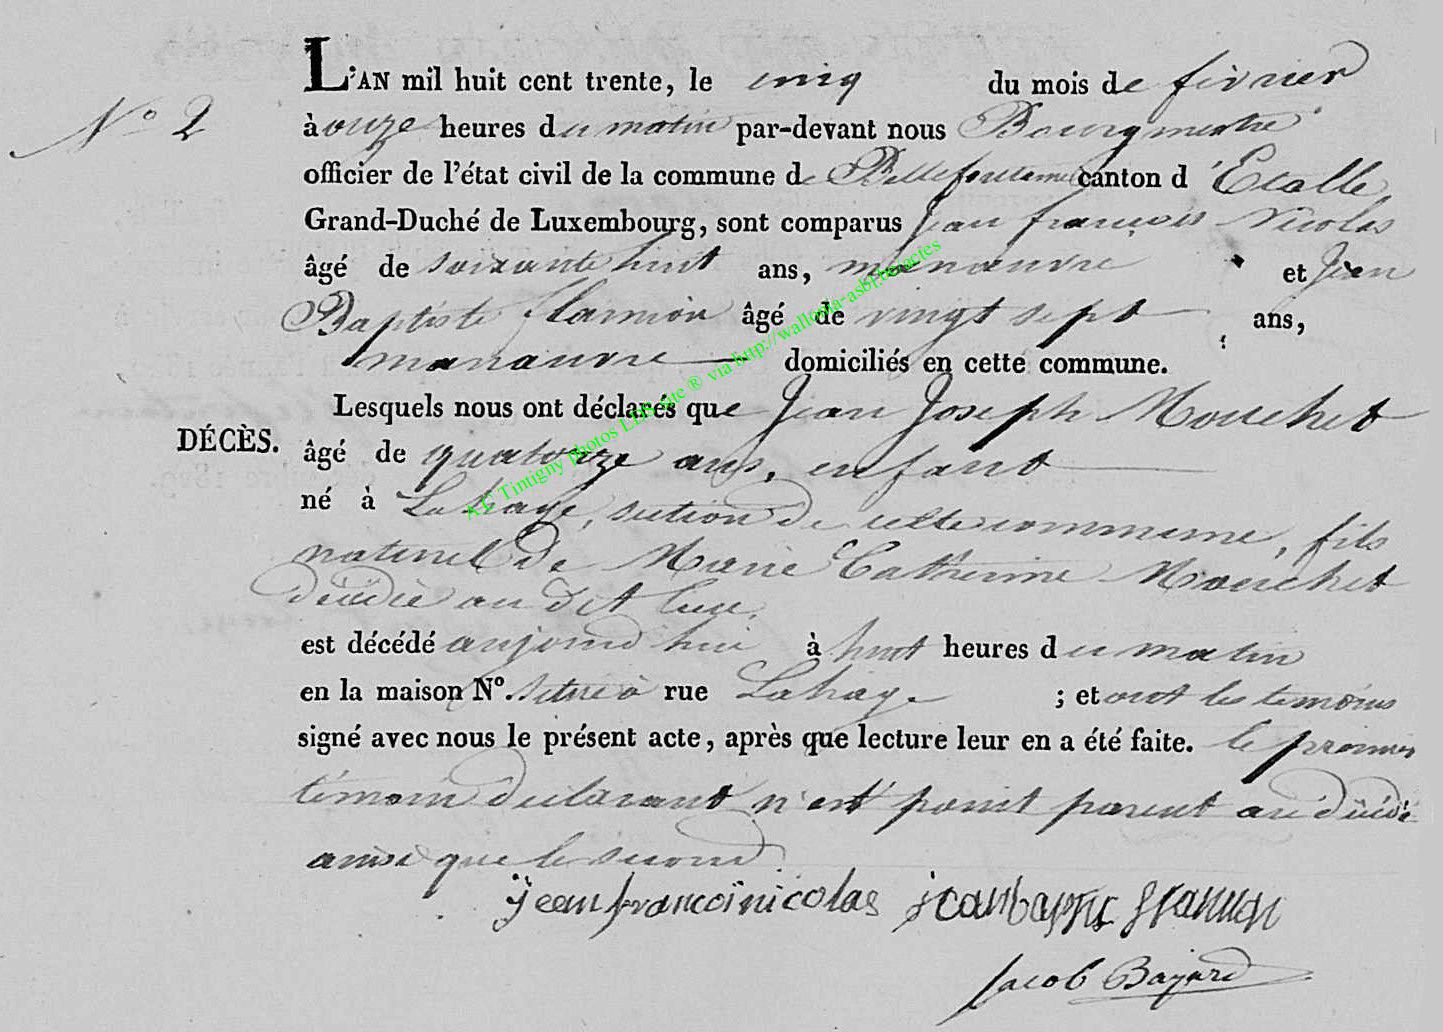 L'AN mil huit cent trente, le cinq du mois de février
N° 2
à onze heures du matin par-devant nous Bourgmestre
officier de l'état civil de la commune de Bellefontaine canton d'Etalle
Grand-Duché de Luxembourg, sont comparus Jean françois Nicolas
âgé de soixante huit ans, manœuvre et Jean
Baptiste flamion âgé de vingt sept ans,
manœuvre domiciliés en cette commune.
Lesquels nous ont déclarés que Jean Joseph Mouchet
DÉCÈS.
âgé de quatorze ans, enfant
né à Lahage, section de cette commune, fils
naturel de Marie Catherine Mouchet
décédée au dit lieu,
est décédé aujourd hui à huit heures du matin
en la maison N°. située à rue Lahage ; et ont les temoins
signé avec nous le présent acte, après que lecture leur en a été faite. le premier
témoin declarant n'est point parent au décédé
ainsi que le second.
jean francoi nicolas jean baptis flamion
Jacob Bajard
A.C Tintigny photos LDS site ® via http://wallonia-asbl.be/actes